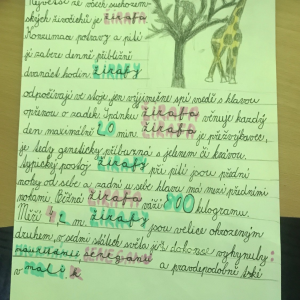 Největší ze všech suchozem-
ských živočichů je žirafa
Konzumace potravy a pití
jí zabere denně přibližně
dvanáct hodin. žirafy
odpočívají ve stoje, jen výjimečně spí vsedě s hlavou
opřenou o zadek. Spánku žirafa věnuje každý
den maximálně 20 min. žirafa je přežvýkavec,
je tedy geneticky příbuzná s jelenem či krávou.
Typický postoj žirafy při pití jsou přední
nohy od sebe a zadní u sebe hlavu má mezi předními
nohami. Běžná žirafa váží 800 kilogramů.
Měří 4 m. žirafy jsou velice ohroženým
druhem, v sedmi státech světa již dokonce vyhynuly:
a pravděpodobně také
v Mali